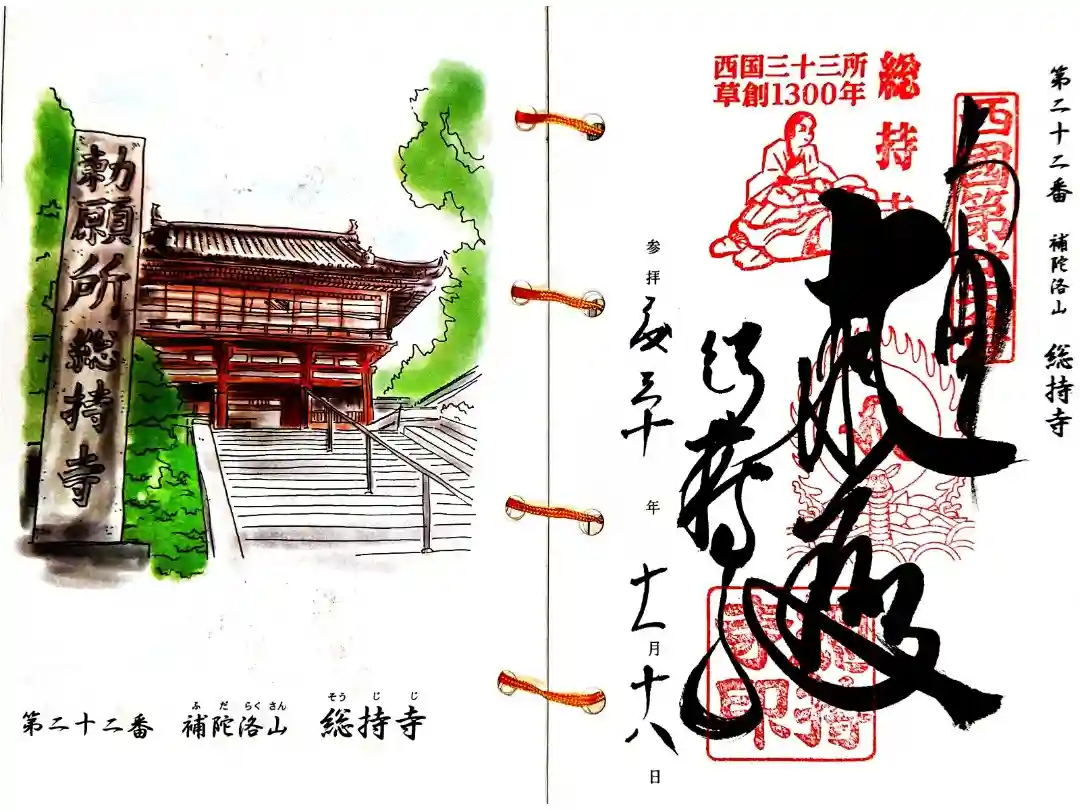 勅願所総持寺
ふだらくさん　そうじじ
第二十二番　補陀洛山　総持寺
第二十二番　補陀洛山　総持寺
西国三十三所
草創1300年
総持寺
大悲殿
総持寺
参拝平成三十年十一月十八日